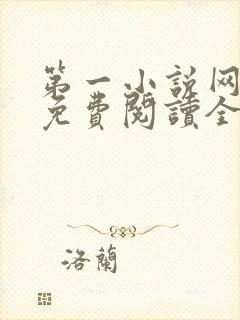 第一小説网
免費閱讀全
洛蘭